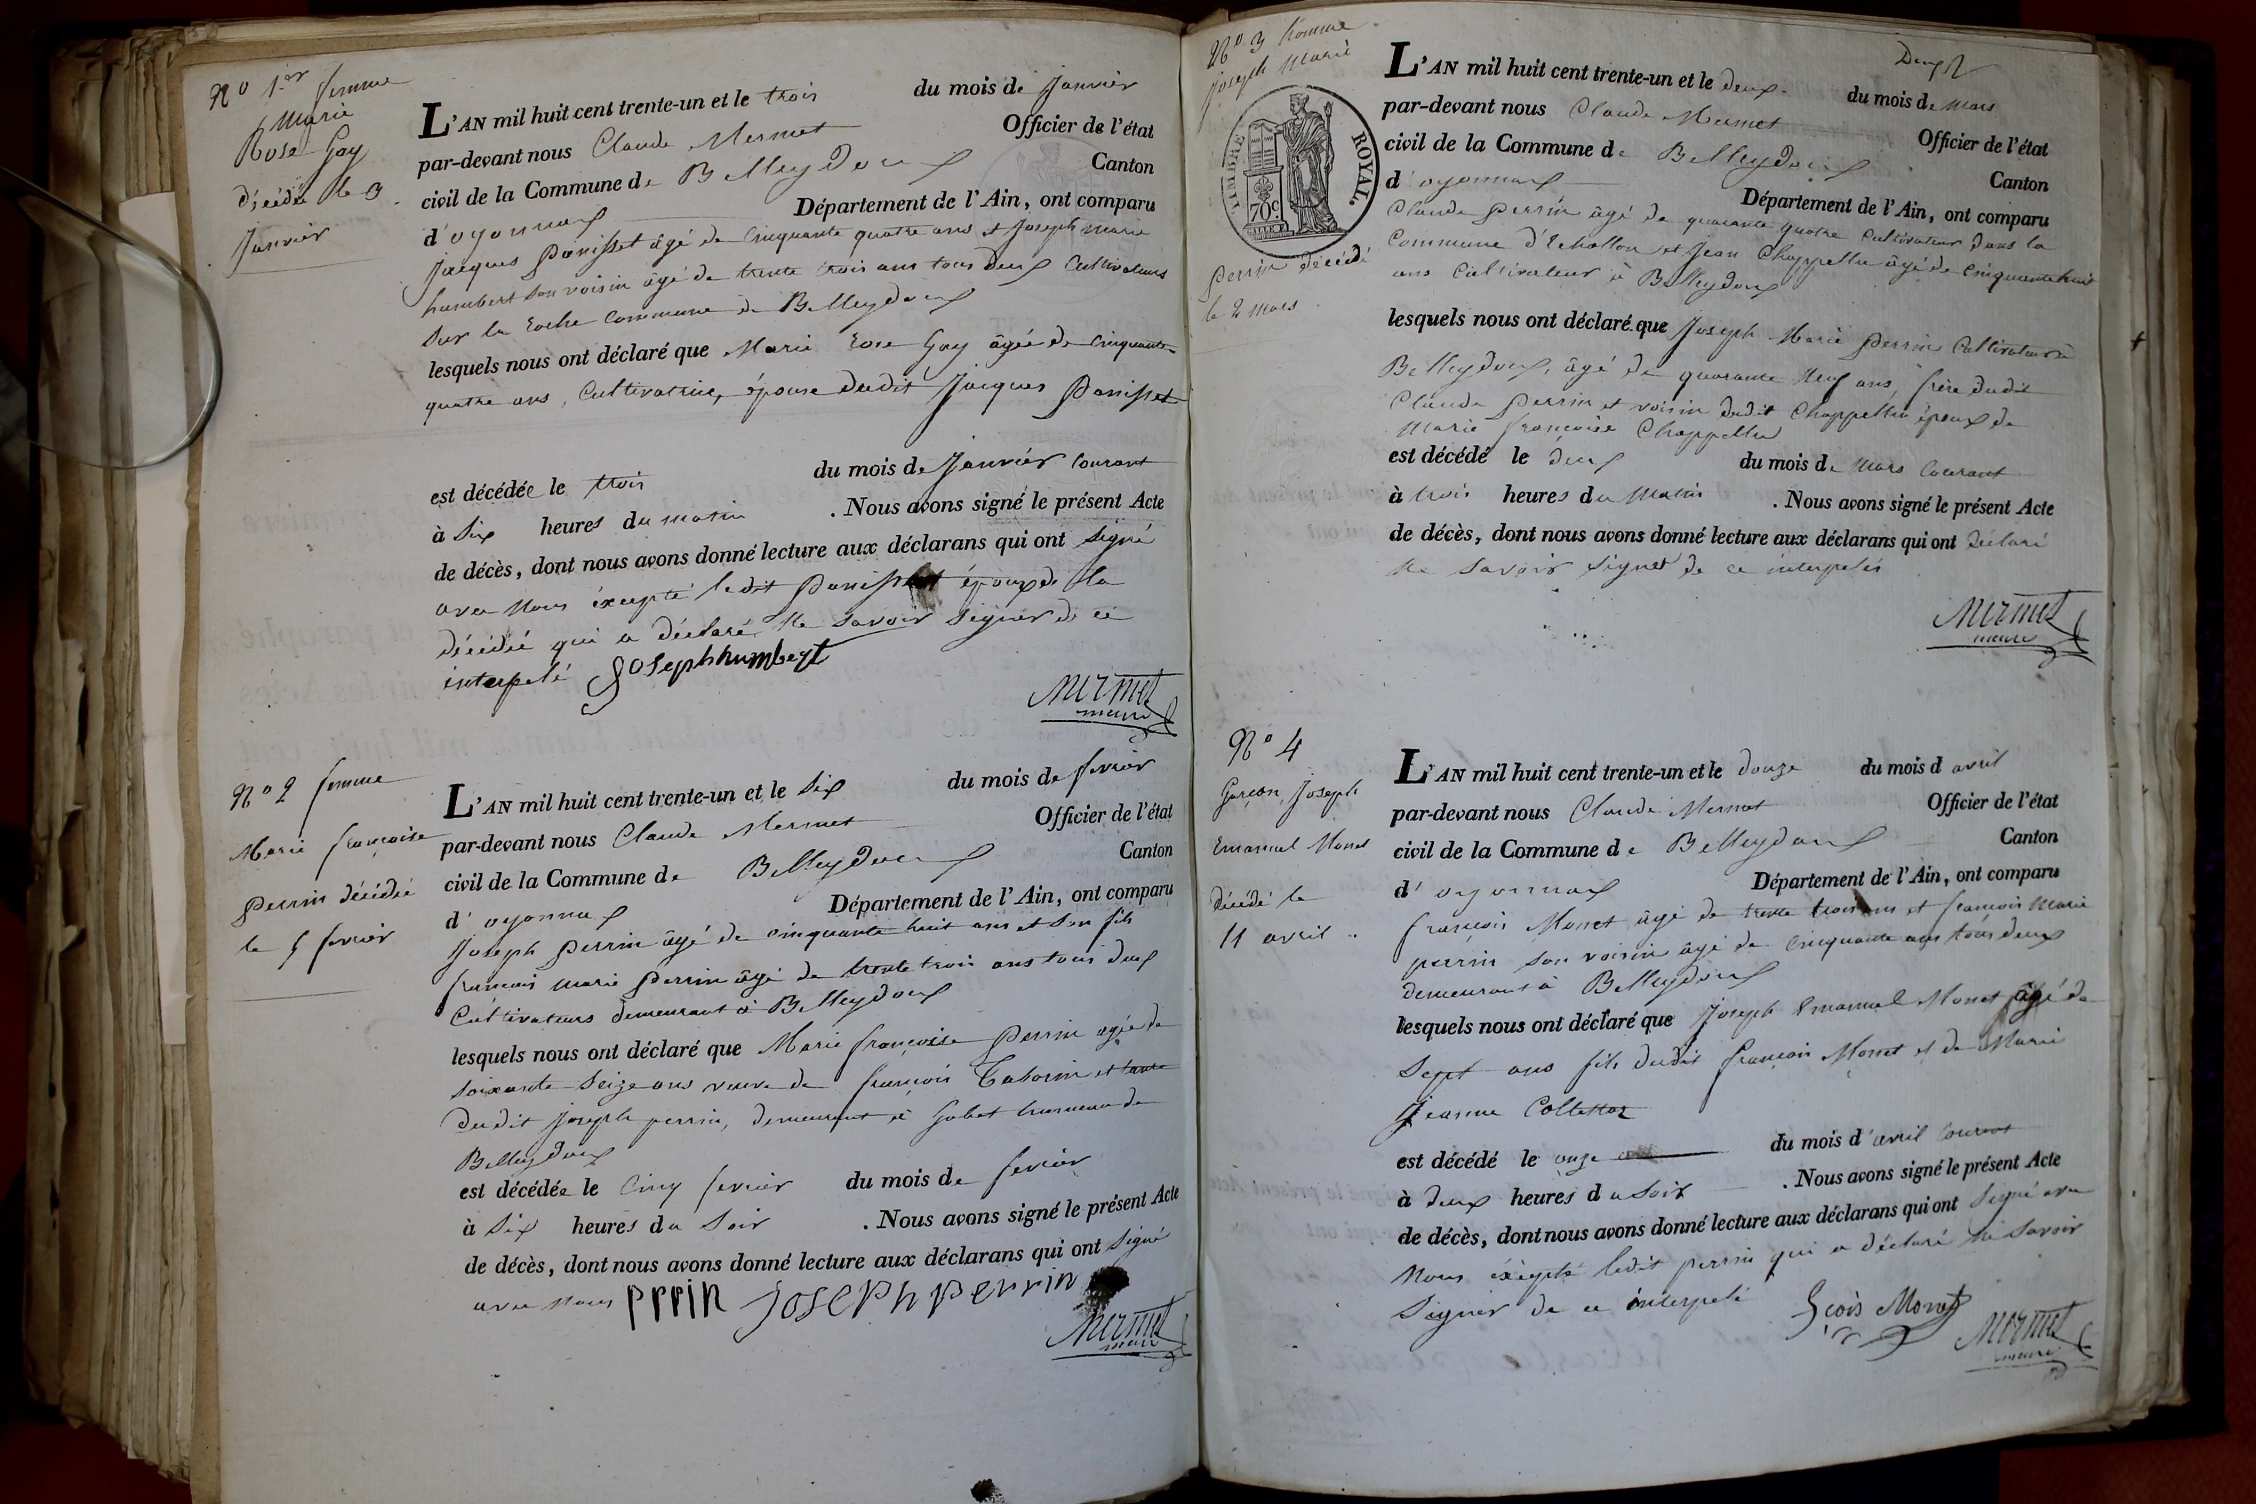 N° 1.er femme
Marie
Rose Gay
décédée le 3
Janvier
L'AN mil huit cent trente-un et le trois du mois de Janvier
par-devant nous Claude Mermet Officier de l'état
civil de la Commune de Belleydoux Canton
d'oyonnax Département de l'Ain, ont comparu
Jacques Panisset âgé de Cinquante quatre ans et Joseph marie
humbert son voisin âgé de trente trois ans tous deux Cultivateurs
sur la roche commune de Belleydoux
lesquels nous ont déclaré que Marie rose Gay âgée de cinquante
quatre ans, Cultivatrice, épouse dudit Jacques Panisset
est décédée le trois du mois de Janvier courant
à six heures du matin . Nous avons signé le présent Acte
de décès, dont nous avons donné lecture aux déclarans qui ont signé
avec nous éxcepté ledit Panisset époux de la
décédée qui a déclaré ne savoir signer de ce
interpelé Joseph humbert
mermet
maire
N° 2 femme
Marie françoise
Perrin décédée
le 5 fevrier
L'AN mil huit cent trente-un et le six du mois de fevrier
par-devant nous Claude Mermet Officier de l'état
civil de la Commune de Belleydoux Canton
d'oyonnax Département de l'Ain, ont comparu
Joseph Perrin âgé de cinquante huit ans et son fils
françois marie Perrin âgé de trente trois ans tous deux
Cultivateurs demeurant à Belleydoux
lesquels nous ont déclaré que Marie françoise Perrin agée de
soixante seize ans veuve de françois Taborin et tante
dudit Joseph perrin, demeurant à Gobet hameau de
Belleydoux
est décédée le Cinq fevrier du mois de fevrier
à six heures du soir . Nous avons signé le présent Acte
de décès, dont nous avons donné lecture aux déclarans qui ont signé
avec nous prrin joseph perrin
mermet
maire
Deux
N° 3 homme
Joseph Marie
TIMBRE ROYAL.
70c.
Perrin décédé
le 2 mars
L'AN mil huit cent trente-un et le deux du mois de mars
par-devant nous Claude Mermet Officier de l'état
civil de la Commune de Belleydoux Canton
d'oyonnax Département de l'Ain, ont comparu
Claude Perrin âgé de quarante quatre Cultivateur dans la
Commune d'Echallon et Jean Chappellu âgé de Cinquante huit
ans Cultivateur à Belleydoux
lesquels nous ont déclaré que Joseph Marie Perrin Cultivateur à
Belleydoux, âgé de quarante neuf ans, frère dudit
Claude Perrin et voisin dudit Chappellu époux de
marie françoise Chappellu
est décédé le deux du mois de mars Courant
à trois heures du Matin . Nous avons signé le présent Acte
de décès, dont nous avons donné lecture aux déclarans qui ont déclaré
ne savoir signer de ce interpelés
mermet
maire
N° 4
Garçon Joseph
Emanuel Monet
décédé le
11 avril
L'AN mil huit cent trente-un et le douze du mois d avril
par-devant nous Claude Mermet Officier de l'état
civil de la Commune de Belleydoux Canton
d'oyonnax Département de l'Ain, ont comparu
françois Monet âgé de trente trois ans et françois Marie
perrin son voisin âgé de Cinquante ans tous deux
demeurant à Belleydoux
lesquels nous ont déclaré que Joseph Emanuel Monet âgé de
sept ans fils dudit françois Monet et de Marie
Jeanne
est décédé le onze du mois d'avril courant
à deux heures du soir . Nous avons signé le présent Acte
de décès, dont nous avons donné lecture aux déclarans qui ont signé avec
nous éxcepté ledit perrin qui a déclaré ne savoir
signer de ce interpelé fçois Monet
mermet
maire